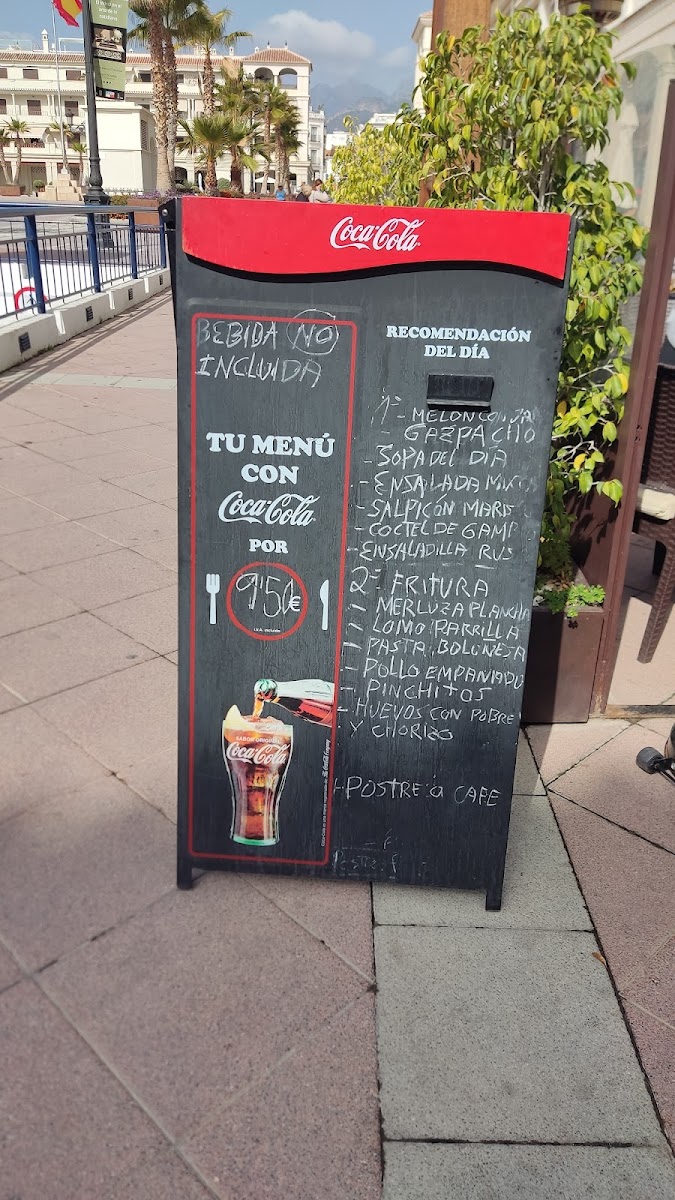 Coca-Cola
BEBIDA NO
INCLUIDA
TU MENÚ
CON
Coca-Cola
POR
9'50€
I.V.A. incluido
SABOR ORIGINAL
Coca-Cola
RECOMENDACIÓN
DEL DÍA
1º- MELON CON JA
- GAZPACHO
- SOPA DEL DIA
- ENSALADA
- SALPICÓN MARIS
- COCTEL DE GAMB
- ENSALADILLA RUS
2º- FRITURA
- MERLUZA PLANCHA
- LOMO PARRILLA
- PASTA BOLOÑESA
- POLLO EMPANADO
- PINCHITOS
- HUEVOS CON POBRE
Y CHORIZO
+ POSTRE o CAFE